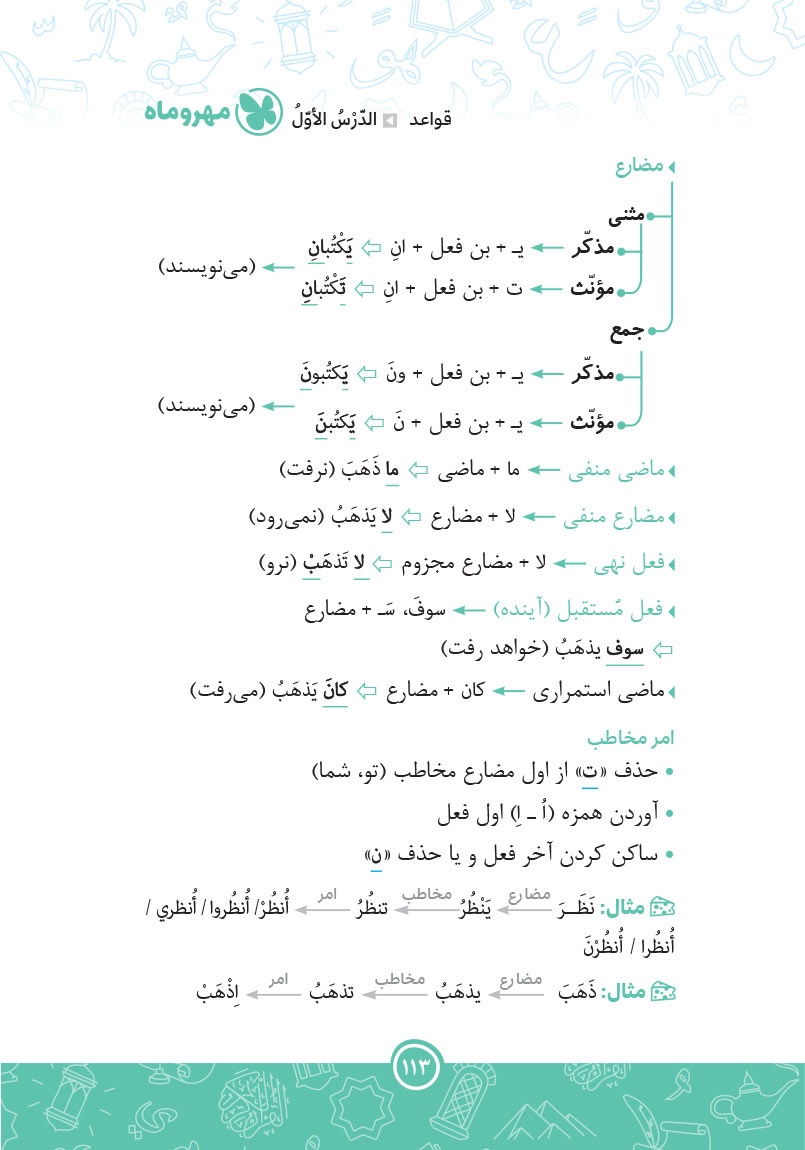 قواعد ◂ الدّرْسُ الأوّلُ مهروماه
مضارع
مثنی
مذکّر ← یـ + بن فعل + انِ ⇦ یَکْتُبانِ
(می‌نویسند)
مؤنّث ← ت + بن فعل + انِ ⇦ تَکْتُبانِ
جمع
مذکّر ← یـ + بن فعل + ونَ ⇦ یَکتُبونَ
(می‌نویسند)
مؤنّث ← یـ + بن فعل + نَ ⇦ یَکتُبنَ
ماضی منفی ← ما + ماضی ⇦ ما ذَهَبَ (نرفت)
مضارع منفی ← لا + مضارع ⇦ لا یَذهَبُ (نمی‌رود)
فعل نهی ← لا + مضارع مجزوم ⇦ لا تَذهَبْ (نرو)
فعل مُستقبل (آینده) ← سوفَ، سَـ + مضارع
⇦ سوف یذهَبُ (خواهد رفت)
ماضی استمراری ← کان + مضارع ⇦ کانَ یَذهَبُ (می‌رفت)
امر مخاطب
• حذف «ت» از اول مضارع مخاطب (تو، شما)
• آوردن همزه (اُ ـ اِ) اول فعل
• ساکن کردن آخر فعل و یا حذف «ن»
مثال: نَظَــرَ ←مضارع یَنْظُرُ ←مخاطب تنظُرُ ←امر أُنظُرْ/ أُنظُروا/ أُنظري /
أُنظُرا / أُنظُرْنَ
مثال: ذَهَبَ ←مضارع یذهَبُ ←مخاطب تذهَبُ ←امر اِذْهَبْ
۱۱۳